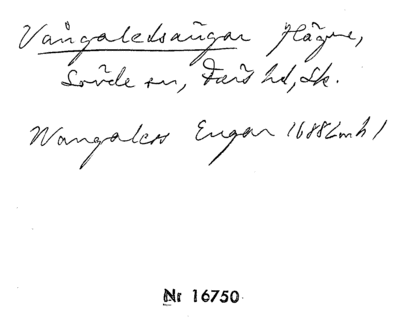 Vångaledsängar Hägne,
Sövde sn, Färs hd, Sk.
Wangaless Engar (1688 Lmh)
Nr 16750